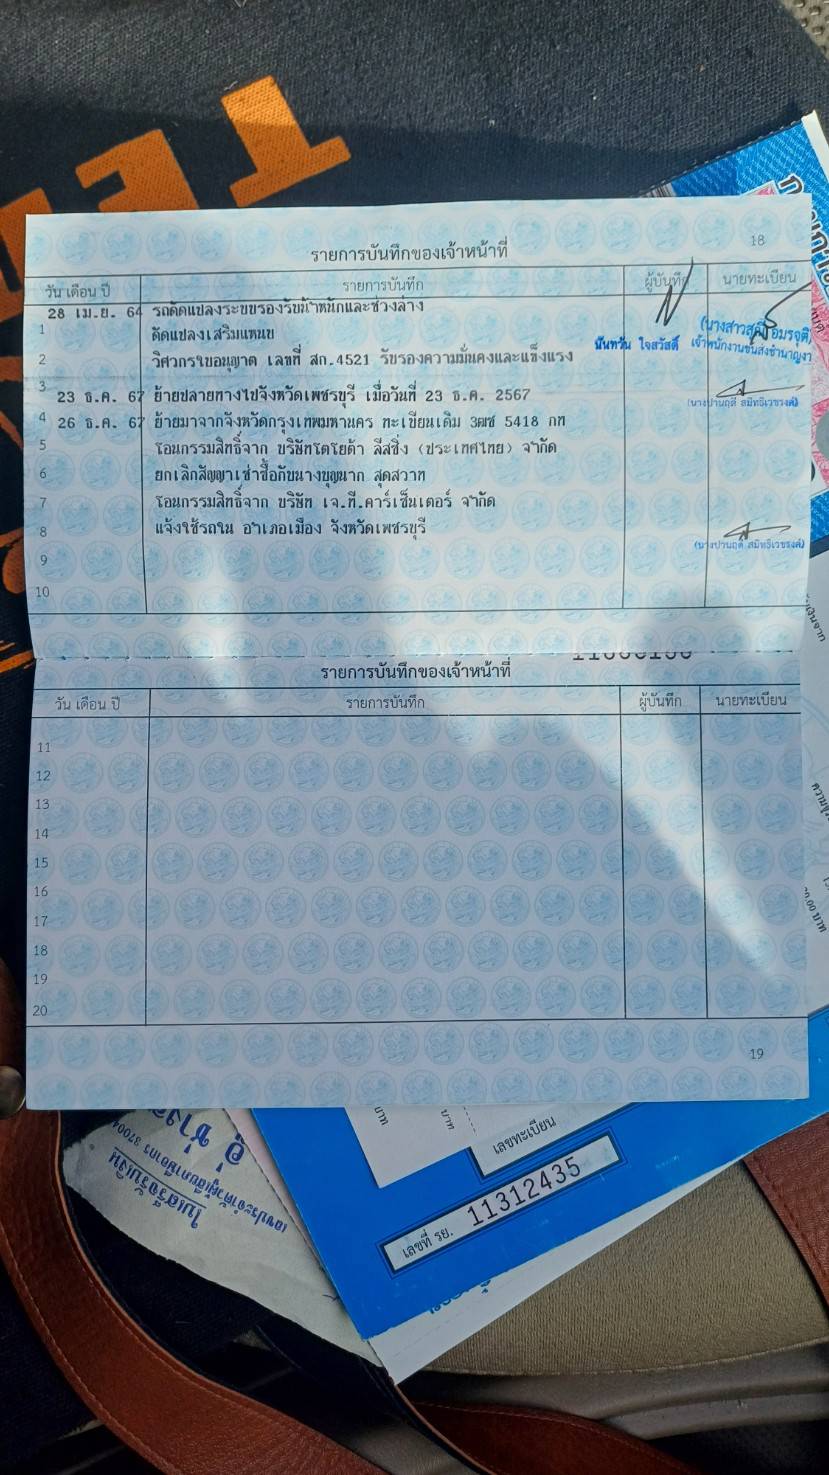 รายการบันทึกของเจ้าหน้าที่
18
วัน เดือน ปี รายการบันทึก ผู้บันทึก นายทะเบียน
28 เม.ย. 64 รถดัดแปลงระบบรองรับน้ำหนักและช่วงล่าง
1 ดัดแปลงเสริมแหนบ
2 วิศวกรใบอนุญาต เลขที่ สก.4521 รับรองความมั่นคงและแข็งแรง
นันทวัน ใจสวัสดิ์ เจ้าพนักงานขนส่งชำนาญงาน
3 23 ธ.ค. 67 ย้ายปลายทางไปจังหวัดเพชรบุรี เมื่อวันที่ 23 ธ.ค. 2567
4 26 ธ.ค. 67 ย้ายมาจากจังหวัดกรุงเทพมหานคร ทะเบียนเดิม 3ฒช 5418 กท
5 โอนกรรมสิทธิ์จาก บริษัทโตโยต้า ลีสซิ่ง (ประเทศไทย) จำกัด
6 ยกเลิกสัญญาเช่าซื้อกับนางบุญนาก สุดสวาท
7 โอนกรรมสิทธิ์จาก บริษัท เจ.ที.คาร์เซ็นเตอร์ จำกัด
8 แจ้งใช้รถใน อำเภอเมือง จังหวัดเพชรบุรี
9
10
รายการบันทึกของเจ้าหน้าที่
วัน เดือน ปี รายการบันทึก ผู้บันทึก นายทะเบียน
11
12
13
14
15
16
17
18
19
20
19
บาท
บาท
เลขทะเบียน
เลขที่ รย. 11312435
ใบเสร็จรับเงิน
เลขประจำตัวผู้เสียภาษีอากร